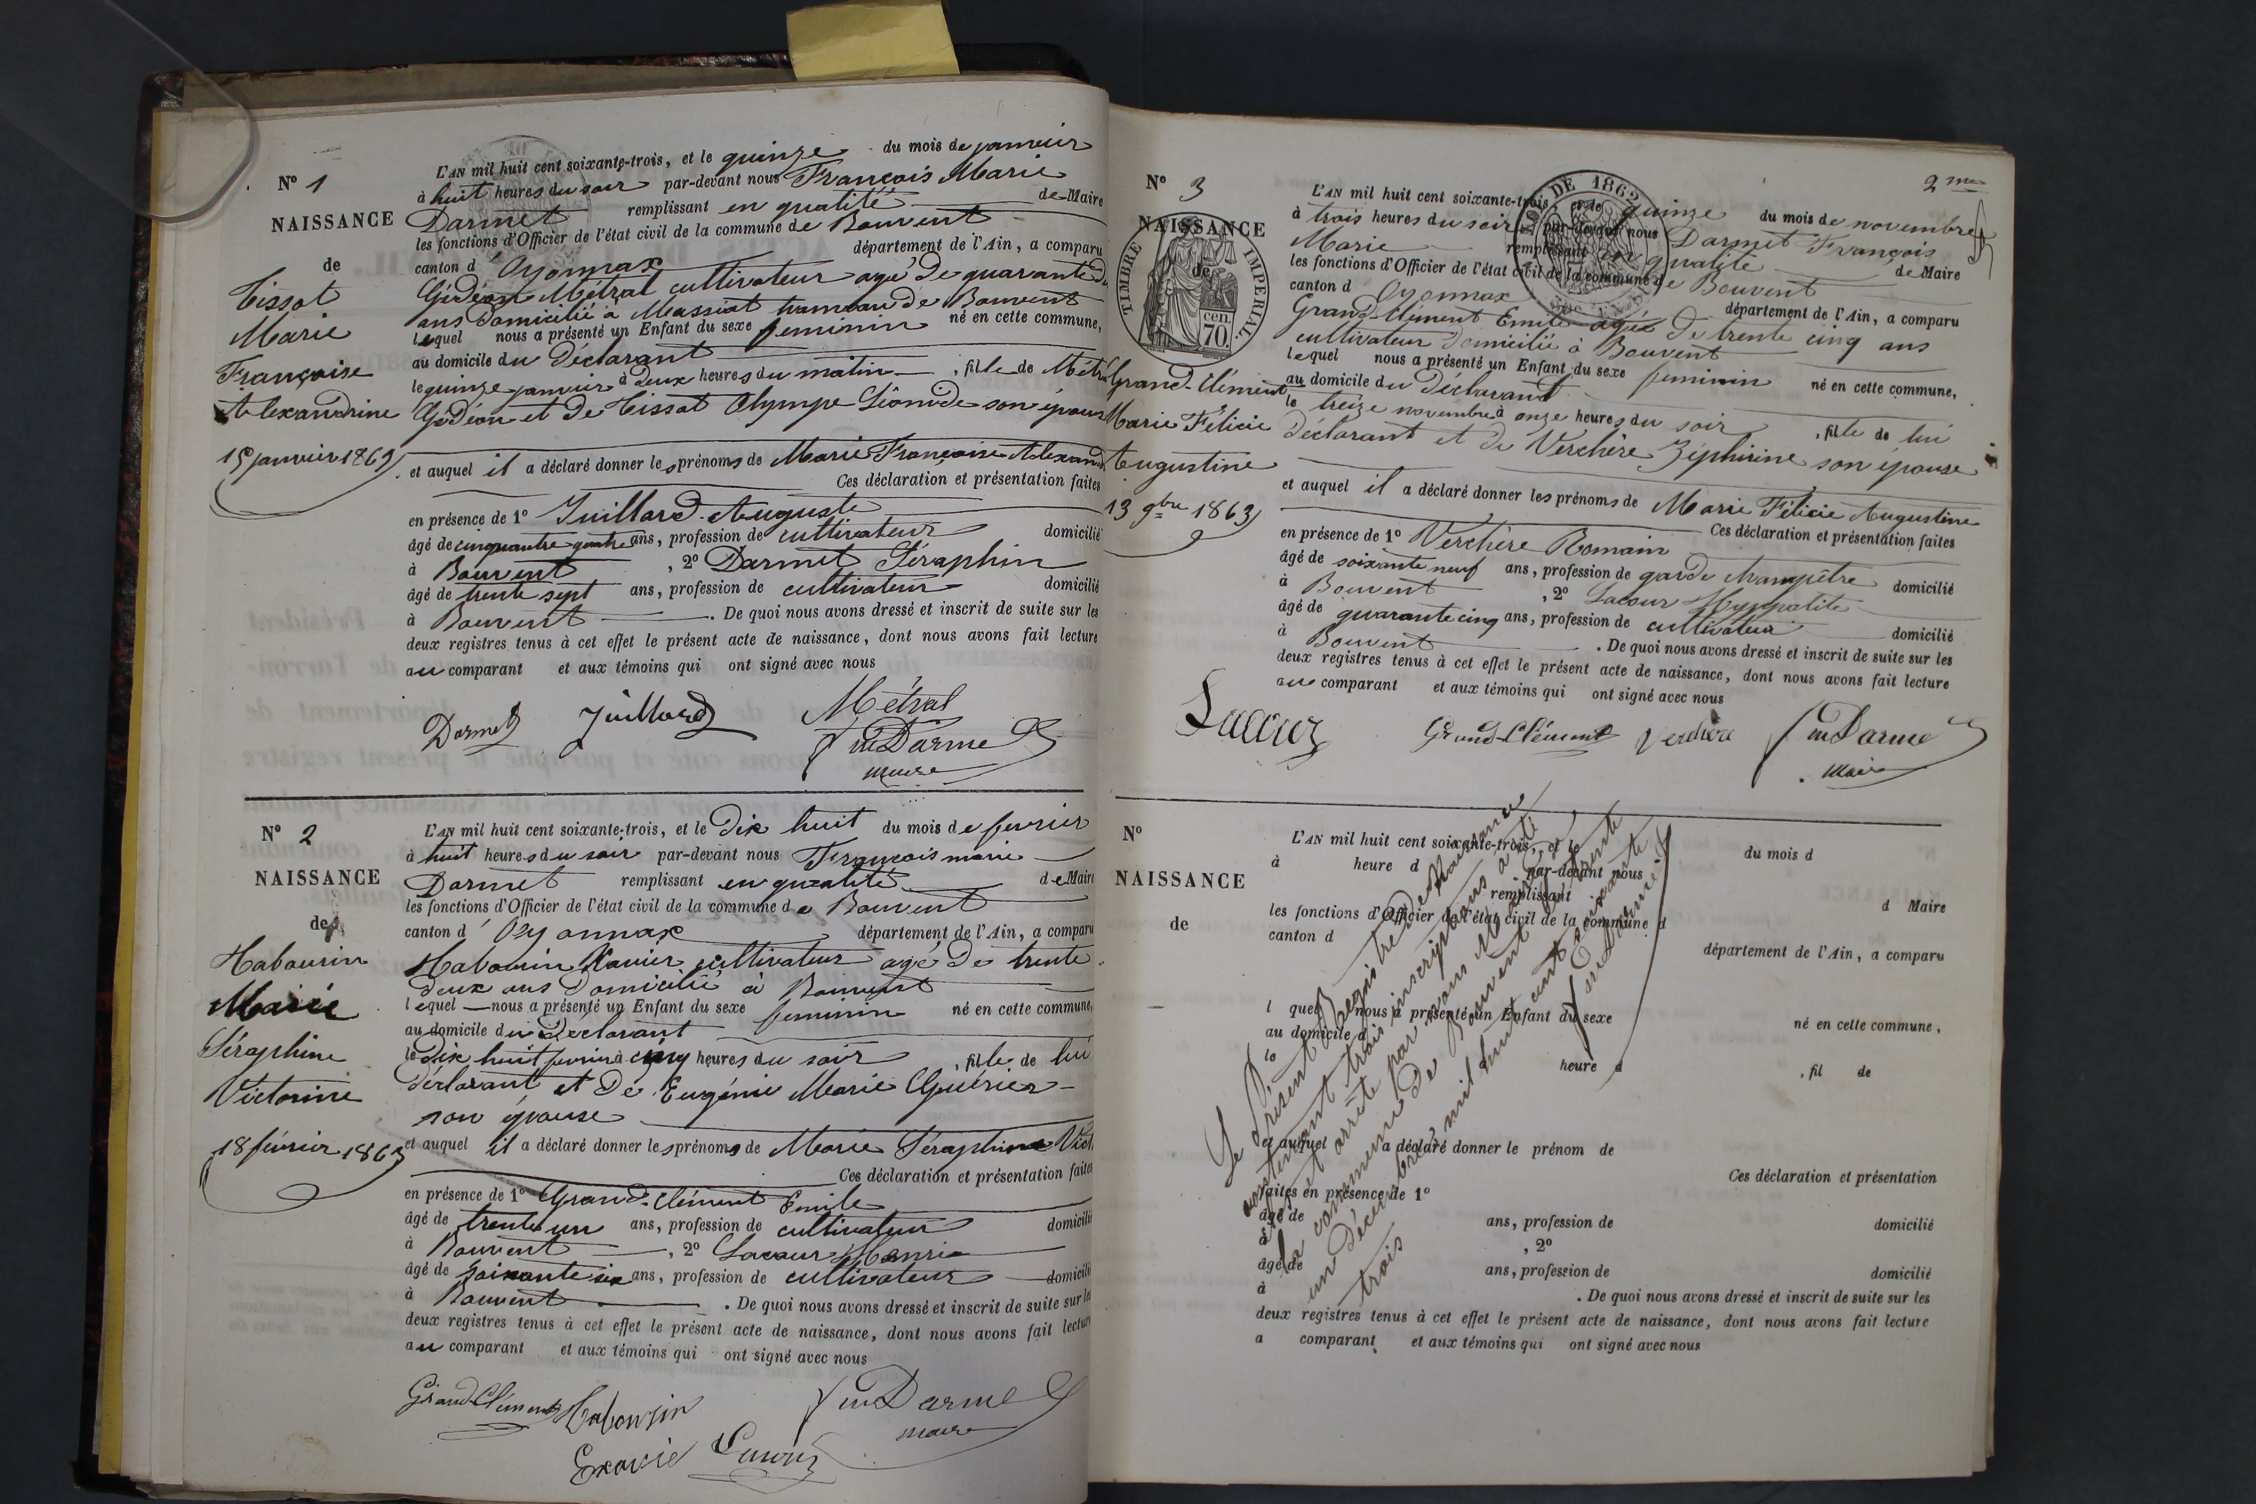 N° 1
NAISSANCE
de
Tissot
Marie
Françoise
Alexandrine
15 janvier 1863
L'AN mil huit cent soixante-trois, et le quinze du mois de janvier
à huit heures du soir par-devant nous François Marie
Darmet remplissant en qualité de Maire
les fonctions d'Officier de l'état civil de la commune de Bouvent
canton d'Oyonnax département de l'Ain, a comparu
Gédéon Métral cultivateur agé de quarante
ans domicilié à Massiat hameau de Bouvent
lequel nous a présenté un Enfant du sexe feminin né en cette commune,
au domicile du Déclarant
le quinze janvier à deux heures du matin, fille de Métral
Gédéon et de Tissot Olympe Léonide son épouse
et auquel il a déclaré donner les prénoms de Marie Françoise Alexand
Ces déclaration et présentation faites
en présence de 1° Juillard Auguste
âgé de cinquante quatre ans, profession de cultivateur domicilié
à Bouvent, 2° Darmet Séraphin
âgé de trente sept ans, profession de cultivateur domicilié
à Bouvent. De quoi nous avons dressé et inscrit de suite sur les
deux registres tenus à cet effet le présent acte de naissance, dont nous avons fait lecture
au comparant et aux témoins qui ont signé avec nous
Darmet Juillard Métral
Darmet
maire
N° 2
NAISSANCE
de
Habourin
Marie
Séraphine
Victorine
18 février 1863
L'AN mil huit cent soixante-trois, et le Dix huit du mois de fevrier
à huit heures du soir par-devant nous François marie
Darmet remplissant en qualité de Maire
les fonctions d'Officier de l'état civil de la commune de Bouvent
canton d'Oyonnax département de l'Ain, a comparu
Habourin Xavier cultivateur agé de trente
deux ans Domicilié à Bouvent
lequel nous a présenté un Enfant du sexe feminin né en cette commune,
au domicile du Declarant
le Dix huit fevrier à cinq heures du soir, fille de lui
déclarant et de Eugénie Marie Guérier
son épouse
et auquel il a déclaré donner les prénoms de Marie Séraphine Vict
Ces déclaration et présentation faites
en présence de 1° Grand-Clément Emile
âgé de trente un ans, profession de cultivateur domicilié
à Bouvent, 2° Lacour Henri
âgé de soixante six ans, profession de cultivateur domicilié
à Bouvent. De quoi nous avons dressé et inscrit de suite sur les
deux registres tenus à cet effet le présent acte de naissance, dont nous avons fait lecture
au comparant et aux témoins qui ont signé avec nous
Grand-Clément Habourin Darmet
maire
Exavié Lacour
2me
N° 3
NAISSANCE
de
TIMBRE IMPERIAL
70 cen.
DE 1862
Grand-Clément
Marie Félicie
Augustine
13 9bre 1863
L'AN mil huit cent soixante-trois, et le quinze du mois de novembre
à trois heures du soir par-devant nous Darmet François
Marie remplissant en qualité de Maire
les fonctions d'Officier de l'état civil de la commune de Bouvent
canton d Oyonnax département de l'Ain, a comparu
Grand-Clément Emile agé de trente cinq ans
cultivateur domicilié à Bouvent
lequel nous a présenté un Enfant du sexe feminin né en cette commune,
au domicile du Déclarant
le treize novembre à onze heures du soir, fille de lui
déclarant et de Verchère Zéphirine son épouse
et auquel il a déclaré donner les prénoms de Marie Félicie Augustine
Ces déclaration et présentation faites
en présence de 1° Verchère Romain
âgé de soixante neuf ans, profession de garde champêtre domicilié
à Bouvent, 2° Lacour Hyppolite
âgé de quarante cinq ans, profession de cultivateur domicilié
à Bouvent. De quoi nous avons dressé et inscrit de suite sur les
deux registres tenus à cet effet le présent acte de naissance, dont nous avons fait lecture
au comparant et aux témoins qui ont signé avec nous
Lacour Grand-Clément Verchère Darmet
Maire
N°
NAISSANCE
de
L'AN mil huit cent soixante-trois, et le du mois d
à heure d par-devant nous
remplissant d Maire
les fonctions d'Officier de l'état civil de la commune d
canton d département de l'Ain, a comparu
l quel nous a présenté un Enfant du sexe né en cette commune,
au domicile d
le heure d, fil de
et auquel a déclaré donner le prénom de
Ces déclaration et présentation
faites en présence de 1°
âgé de ans, profession de domicilié
à , 2°
âgé de ans, profession de domicilié
à . De quoi nous avons dressé et inscrit de suite sur les
deux registres tenus à cet effet le présent acte de naissance, dont nous avons fait lecture
a comparant et aux témoins qui ont signé avec nous
Le Présent Registre de Naissance
contenant trois inscriptions a été
clos et arrêté par nous Maire de
la commune de Bouvent le trente
un Décembre mil huit cent soixante
trois
Darmet